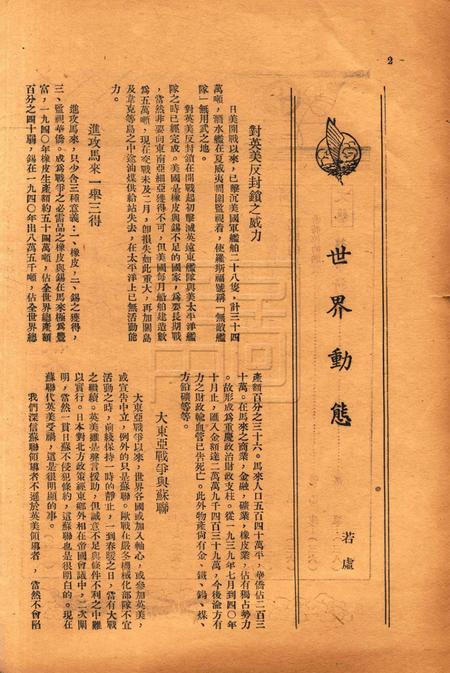 2
世界動態
若虛
對英美反封鎖之威力
日美開戰以來，已擊沉美國軍艦船二十八隻，計三十四
萬噸，潛水艦在夏威夷周圍監視着，使羅斯福號稱「無敵艦
隊」無用武之地。
對英美反封鎖在開戰起初擊滅英遠東艦隊與美太平洋艦
隊之時已經完成。美國是橡皮與錫不足的國家，爲要長期戰
，當然非要向東南亞細亞獲得不可，但美國每月船舶建造數
爲五萬噸，現在交戰未及二月，卽損失如此重大，再加關島
及韋克等島之中途油煤供給站失去，在太平洋上已無活動能
力。
進攻馬來一舉三得
進攻馬來，只少含三種意義：一、橡皮，二、錫之獲得，
三、監視華僑。成爲戰爭之必需品之橡皮與錫在馬來極爲豐
富，一九四〇年橡皮生產額約五十四萬噸，佔全世界總產額
百分之四十弱，錫在一九四〇年出八萬五千噸，佔全世界總
產額百分之三十六。馬來人口五百四十萬乎，華僑佔二百三
十萬。在馬來之商業，金融，礦業，橡皮業，佔有獨占勢力
。故形成爲重慶政治財政支柱。從一九三九年七月到四〇年
十月止，匯入金額達二萬九千四百三十九萬，今後渝方有
力之財政輸血管已吿死亡。此外物產尙有金、鐵、錫、煤、
方鉛礦等等。
大東亞戰爭與蘇聯
大東亞戰爭以來，世界各國或加入軸心，或參加英美，
或宣吿中立，例外的只是蘇聯。歐戰在嚴冬機械化部隊不宜
活動之時，前綫保持一時的靜止，一到春暖之日，當有大戰
之繼續。英美雖是聲言援助，但誠意不足與條件不利之中難
以實行。日本對北方政策經東鄉外相在帝國會議中，二次闡
明，當然一貫日蘇不侵犯條約，這蘇聯也是很明白的。現在
蘇聯代英美受禍，這是很明顯的事。
我們深信蘇聯領導者不遜於英美領導者，當然不會陷